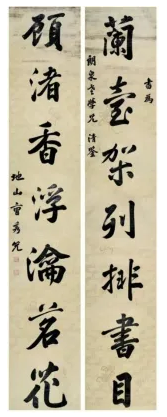 書為
蘭臺架列排書目
朗泉老學兄 清鑒
顧渚香浮瀹茗花
地山曹秀先